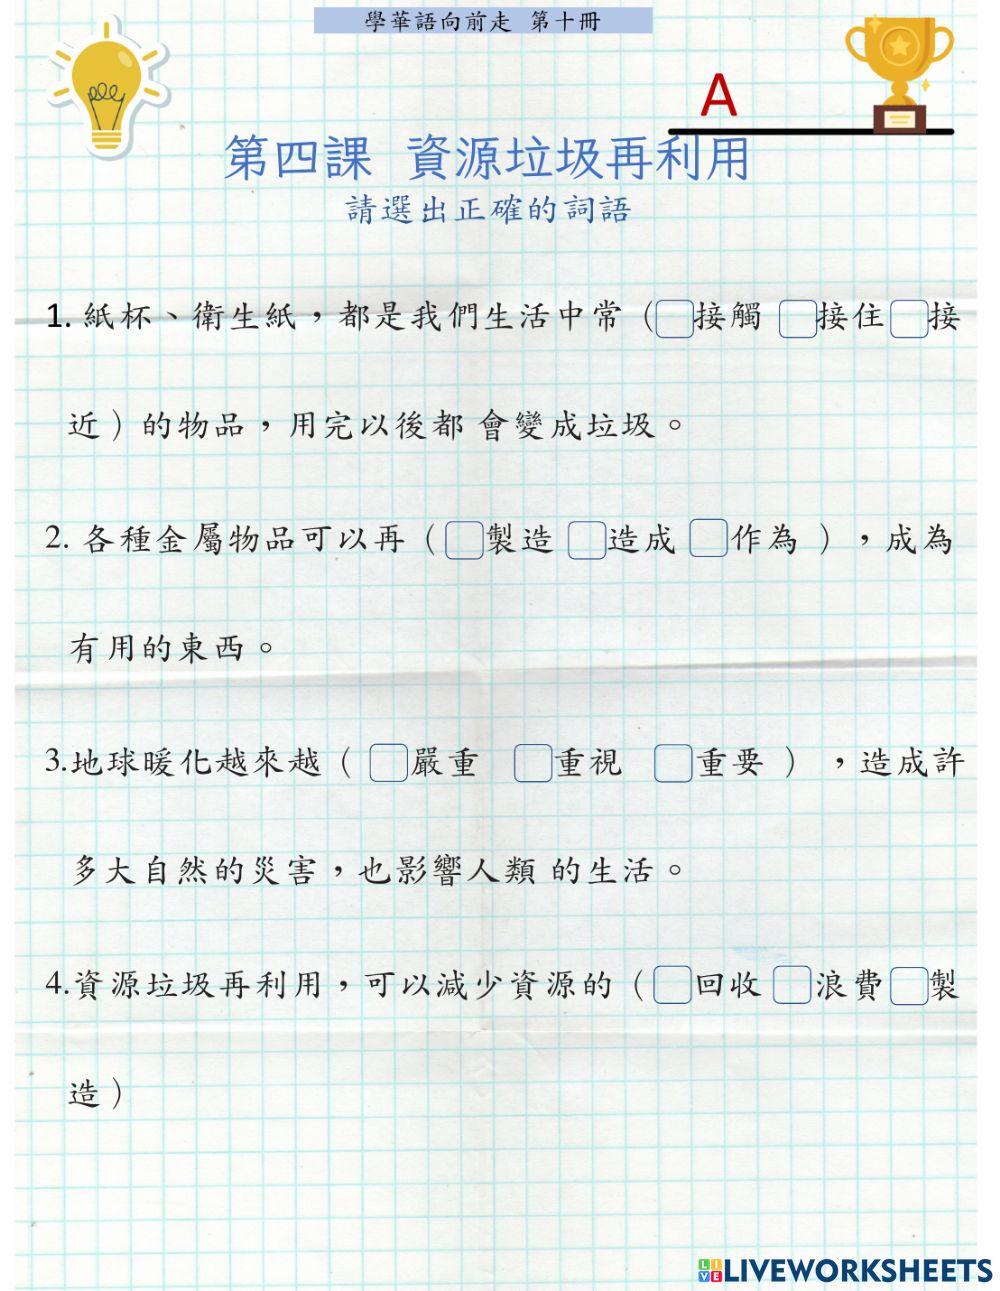 學華語向前走 第十冊
A
第四課 資源垃圾再利用
請選出正確的詞語
1. 紙杯、衛生紙，都是我們生活中常（□接觸 □接住□接
近）的物品，用完以後都 會變成垃圾。
2. 各種金屬物品可以再（□製造 □造成 □作為 ），成為
有用的東西。
3.地球暖化越來越（ □嚴重 □重視 □重要 ） ，造成許
多大自然的災害，也影響人類 的生活。
4.資源垃圾再利用，可以減少資源的（□回收 □浪費□製
造）
LIVEWORKSHEETS